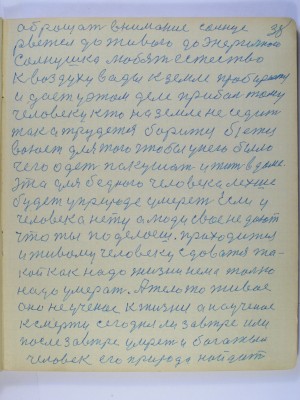 обращат внимание солнце 38
рвется до живого до энергичнаго
Солнушка любят естество
к воздуху вады к земле прабираит
и дает у этом деле прибал таму
человеку кто на земле не седит
так а трудется бориться б
воюет для того чтобы у него было
чего одет пакушат и жит в доме
эта для бедного человека лехше
будет у природе умереть Если у
человека нету а люди свое не дают
что ты поделаеш. приходится
и живому человеку сдоватся та-
кой как надо жизни нема толко
надо умерат. А тело то живое
оно не ученае к жизни а научене
к смерти сегодня ли завтре или
после завтре умрет и богатый
человек его природа найдит